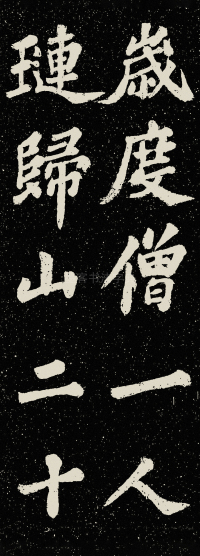 歲度僧一人
璉歸山二十